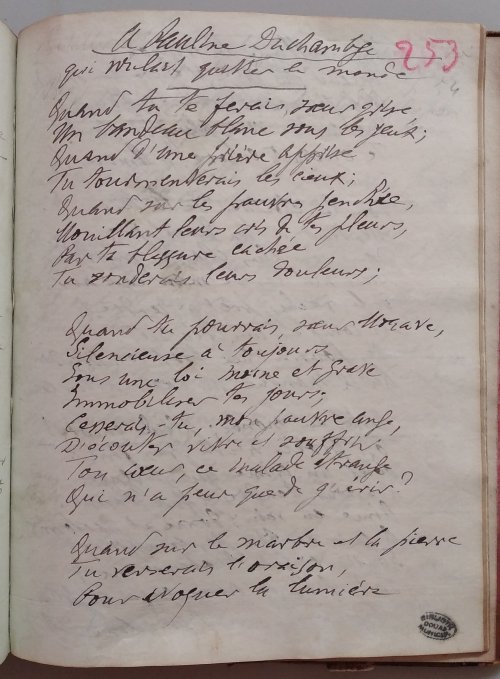 A Pauline Duchambge
253
qui voulait quitter le monde
Quand tu te ferais, sœur grise
Un bandeau blanc sous les yeux;
Quand d'une prière apprise
Tu tourmenterais les cieux;
Quand sur les pauvres penchée,
Mouillant leurs cris de tes pleurs,
Par ta blessure cachée
Tu sonderais leurs douleurs;
Quand tu pourrais, sœur Morave,
Silencieuse à toujours
Sous une loi morne et grave
Immobiliser tes jours;
Cesserais-tu, mon pauvre ange,
D'écouter vivre et souffrir
Ton cœur, ce malade étrange
Qui n'a peur que de guérir?
Quand sur le marbre et la pierre
Tu verserais l'oraison,
Pour évoquer la lumière
BIBLIOTH
DOUAI